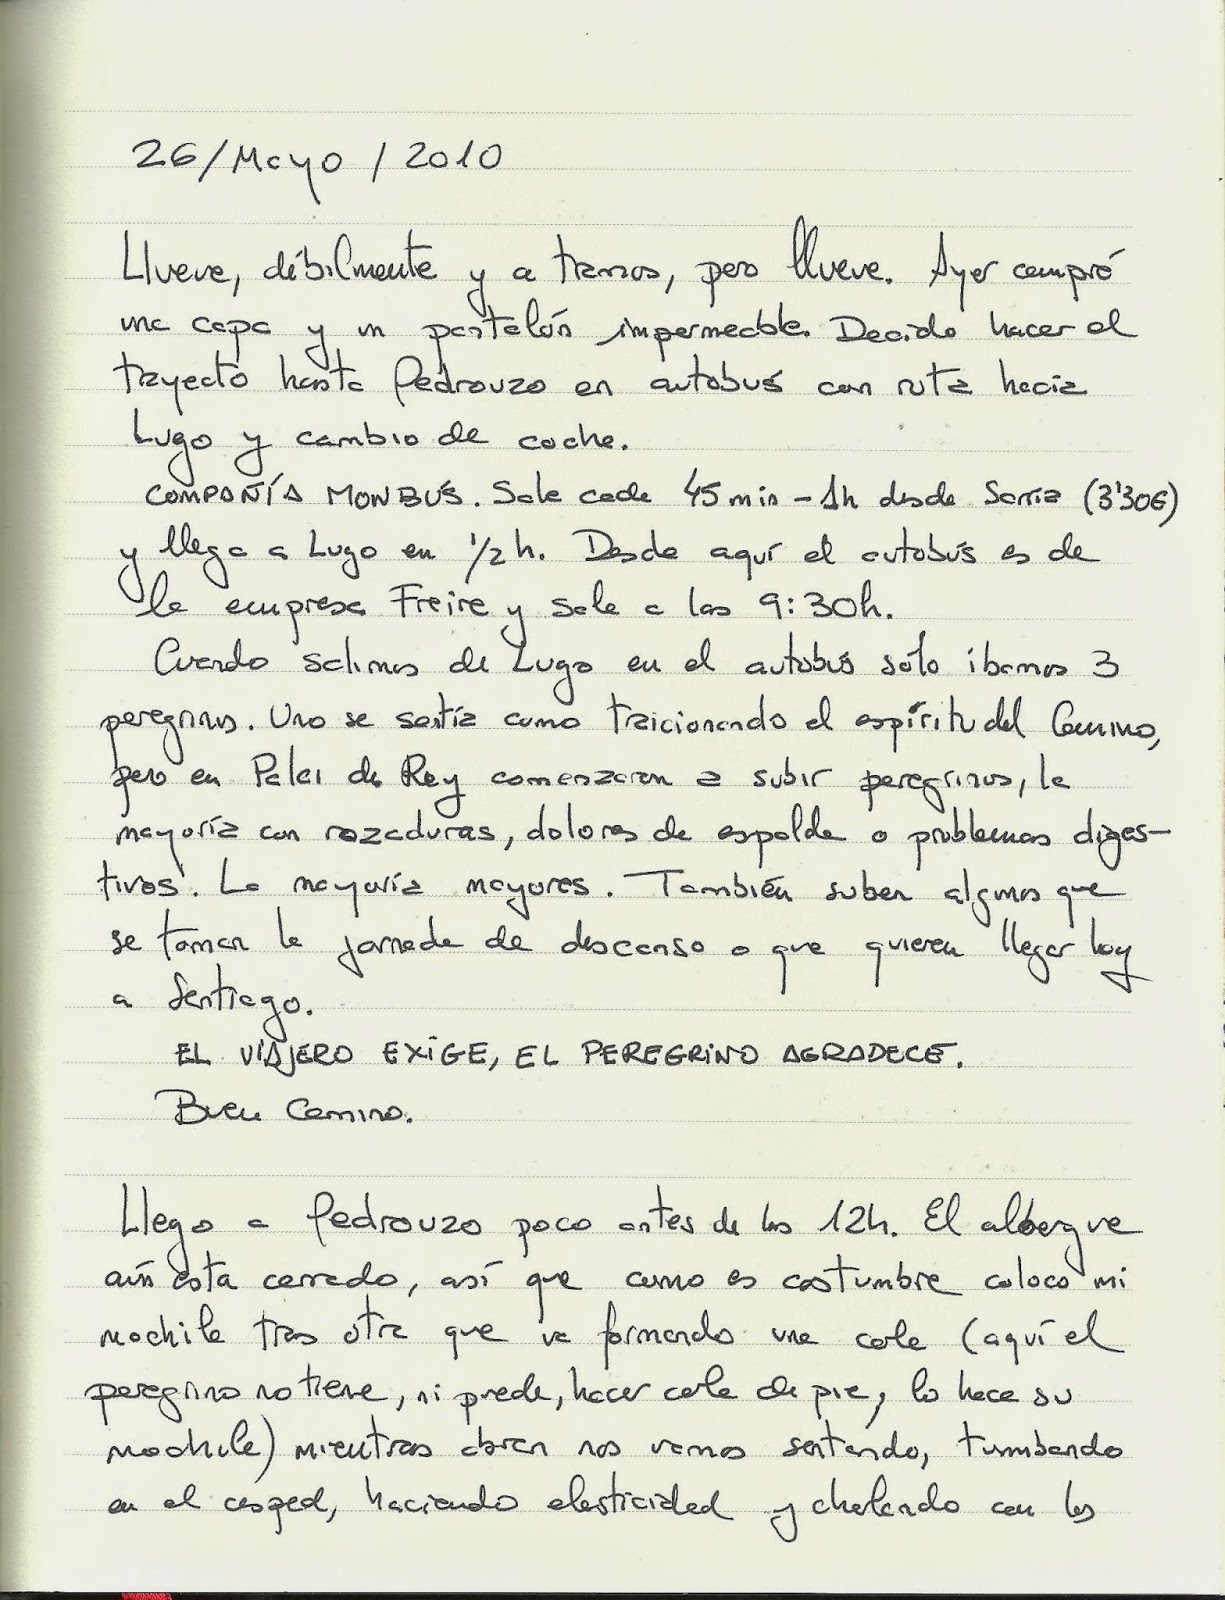 26/Mayo/2010
Llueve, débilmente y a tramos, pero llueve. Ayer compré
una capa y un pantalón impermeable. Decido hacer el
trayecto hasta Pedrouzo en autobús con ruta hacia
Lugo y cambio de coche.
COMPAÑÍA MONBÚS. Sale cada 45 min - 1h desde Sarria (3'30€)
y llega a Lugo en 1/2 h. Desde aquí el autobús es de
la empresa Freire y sale a las 9:30h.
Cuando salimos de Lugo en el autobús sólo íbamos 3
peregrinos. Uno se sentía como traicionando el espíritu del Camino,
pero en Palai de Rey comenzaron a subir peregrinos, la
mayoría con rozaduras, dolores de espalda o problemas diges-
tivos. La mayoría mayores. También suben algunos que
se toman la jornada de descanso o que quieren llegar hoy
a Santiago.
EL VIAJERO EXIGE, EL PEREGRINO AGRADECE.
Buen Camino.
Llego a Pedrouzo poco antes de las 12h. El albergue
aún esta cerrado, así que como es costumbre coloco mi
mochila tras otra que va formando una cola (aquí el
peregrino no tiene, ni puede, hacer cola de pie, lo hace su
mochila) mientras abren nos vamos sentando, tumbando
en el cesped, haciendo elasticidad y charlando con los